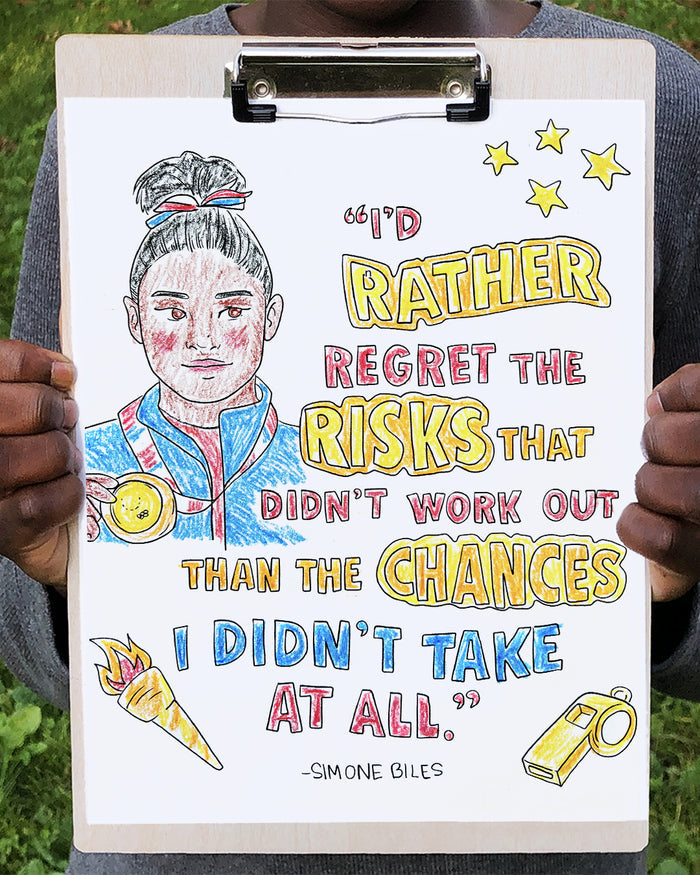 “I’D
RATHER
REGRET THE
RISKS THAT
DIDN’T WORK OUT
THAN THE CHANCES
I DIDN’T TAKE
AT ALL.”
-SIMONE BILES